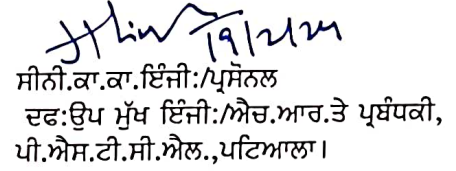 19/2/24
ਸੀਨੀ.ਕਾ.ਕਾ.ਇੰਜੀ:/ਪ੍ਰਸੋਨਲ
ਦਫ:ਉਪ ਮੁੱਖ ਇੰਜੀ:/ਐਚ.ਆਰ.ਤੇ ਪ੍ਰਬੰਧਕੀ,
ਪੀ.ਐਸ.ਟੀ.ਸੀ.ਐਲ.,ਪਟਿਆਲਾ।